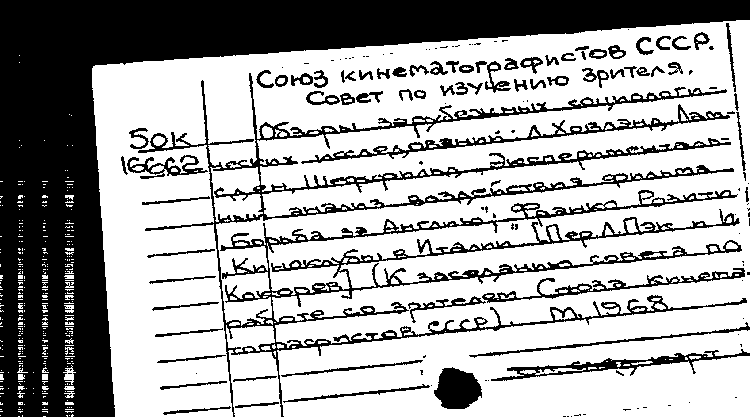 Союз кинематографистов СССР.
Совет по изучению зрителя.
50К Обзоры зарубежных социологи-
16662 ческих исследований: Л. Ховлэнд, Лам-
сден, Шеффилд „Эксперименталь-
ный анализ воздействия фильма
„Борьба за Англию"; Франко Розити
„Киноклубы в Италии" [Пер. Л. Пэк и И.
Кокорев] (К заседанию совета по
работе со зрителем Союза кинема-
тографистов СССР). М., 1968.
см. след. карт